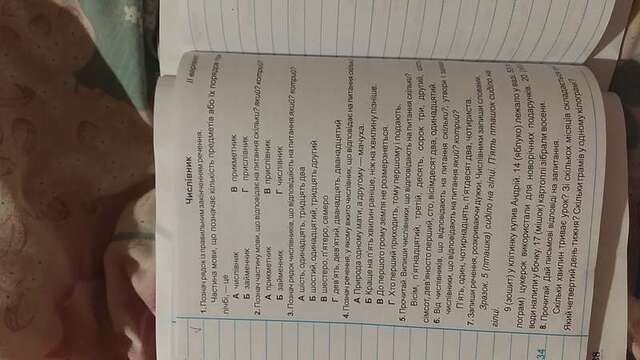 Числівник
ІІ варіант
1. Познач рядок із правильним закінченням речення.
Частина мови, що позначає кількість предметів або їх порядок при
лічбі, — це
А числівник В прикметник
Б займенник Г прислівник
2. Познач частину мови, що відповідає на питання скільки? який? котрий?
А прикметник В прислівник
Б займенник Г числівник
3. Познач рядок числівників, що відповідають на питання який? котрий?
А шість, одинадцять, тридцять два
Б шостий, одинадцятий, тридцять другий
В шестеро, п'ятеро, семеро
Г дев'ять, дев'ятий, дванадцять, дванадцятий
4. Познач речення, у якому вжито числівник, що відповідає на питання
А Природа одному мати, а другому — мачуха.
Б Краще на п'ять хвилин раніше, ніж на хвилину пізніше.
В До першого грому земля не розмерзнеться.
Г Хто перший приходить, тому першому і подають.
5. Прочитай. Випиши числівники, що відповідають на питання скільки?
Вісім, п'ятнадцятий, третій, десять, сорок три, другий,
сімсот, дев'яносто перший, сто, вісімдесят два, одинадцятий.
6. Від числівників, що відповідають на питання скільки?, утвори і
числівники, що відповідають на питання який? котрий?
П'ять, один, чотирнадцять, п'ятдесят два, чотириста.
7. Запиши речення, розкриваючи дужки. Числівники запиши словами.
Зразок. 5 (пташка) сиділо на гілці. П'ять пташок сиділо на
гілці.
9 (зошит) у клітинку купив Андрій. 14 (яблуко) лежало у вазі. 5
лограм) цукерок використали для новорічних подарунків. 20
відри налили у бочку. 17 (мішок) картоплі зібрали восени.
8. Прочитай. Дай письмові відповіді на запитання.
Скільки хвилин триває урок? Зі скількох місяців складається
Який четвертий день тижня? Скільки грамів у одному кілограмі?
34
38